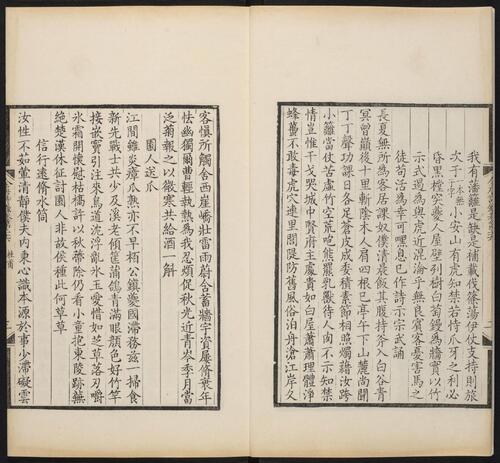 我有藩籬是缺是補載伐篠簜伊仗支持則旅
次于小安山有虎知禁若恃爪牙之利必
昏黑橖突夔人屋壁列樹白萄鏝為牆實以竹
示式遏為與虎近混淪乎無良賓客憂害馬之
徒苟活為幸可嘿息已作詩示宗武誦
長夏無所為客居課奴僕清晨飯其腹持斧入白谷青
冥曾巔後十里斬陰木人肩四根已亭午下山麓尚聞
丁丁聲功課日各足蒼皮成委積素節相照燭藉汝跨
小籬當仗苦虛竹空荒咆熊羆乳獸待人肉不示知禁
情豈惟干戈哭城中賢府主處貴如白屋蕭蕭理體淨
蜂蠆不敢毒虎穴連里閭隄防舊風俗泊舟滄江岸久
客慎所觸舍西崖嶠壯雷雨蔚含蓄牆宇資屢脩衰年
怯幽獨爾曹輕執熱為我忍煩促秋光近青岑季月當
泛菊報之以微寒共給酒一斛
園人送瓜
江間雖炎瘴瓜熟亦不早柏公鎮夔國滯務茲一掃食
新先戰士共少及溪老傾筐蒲鴿青滿眼顏色好竹竿
接嵌竇引注來鳥道沈浮亂水玉愛惜如芝草落刃嚼
冰霜開懷慰枯槁許以秋蔕除仍看小童抱東陵跡蕪
絕楚漢休征討園人非故侯種此何草草
信行遠脩水筒
汝性不茹葷清靜僕夫內秉心識本源於事少滯礙雲